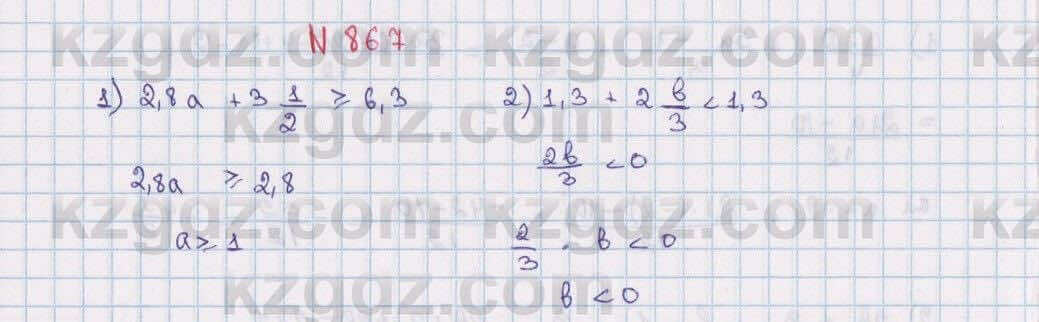 N 867
1) 2,8a + 3 1/2 ≥ 6,3
2,8a ≥ 2,8
a ≥ 1
2) 1,3 + 2 b/3 < 1,3
2b/3 < 0
2/3 · b < 0
b < 0
kzgdz.com
kzgdz.com
kzgdz.com
kzgdz.com
kzgdz.com
kzgdz.com